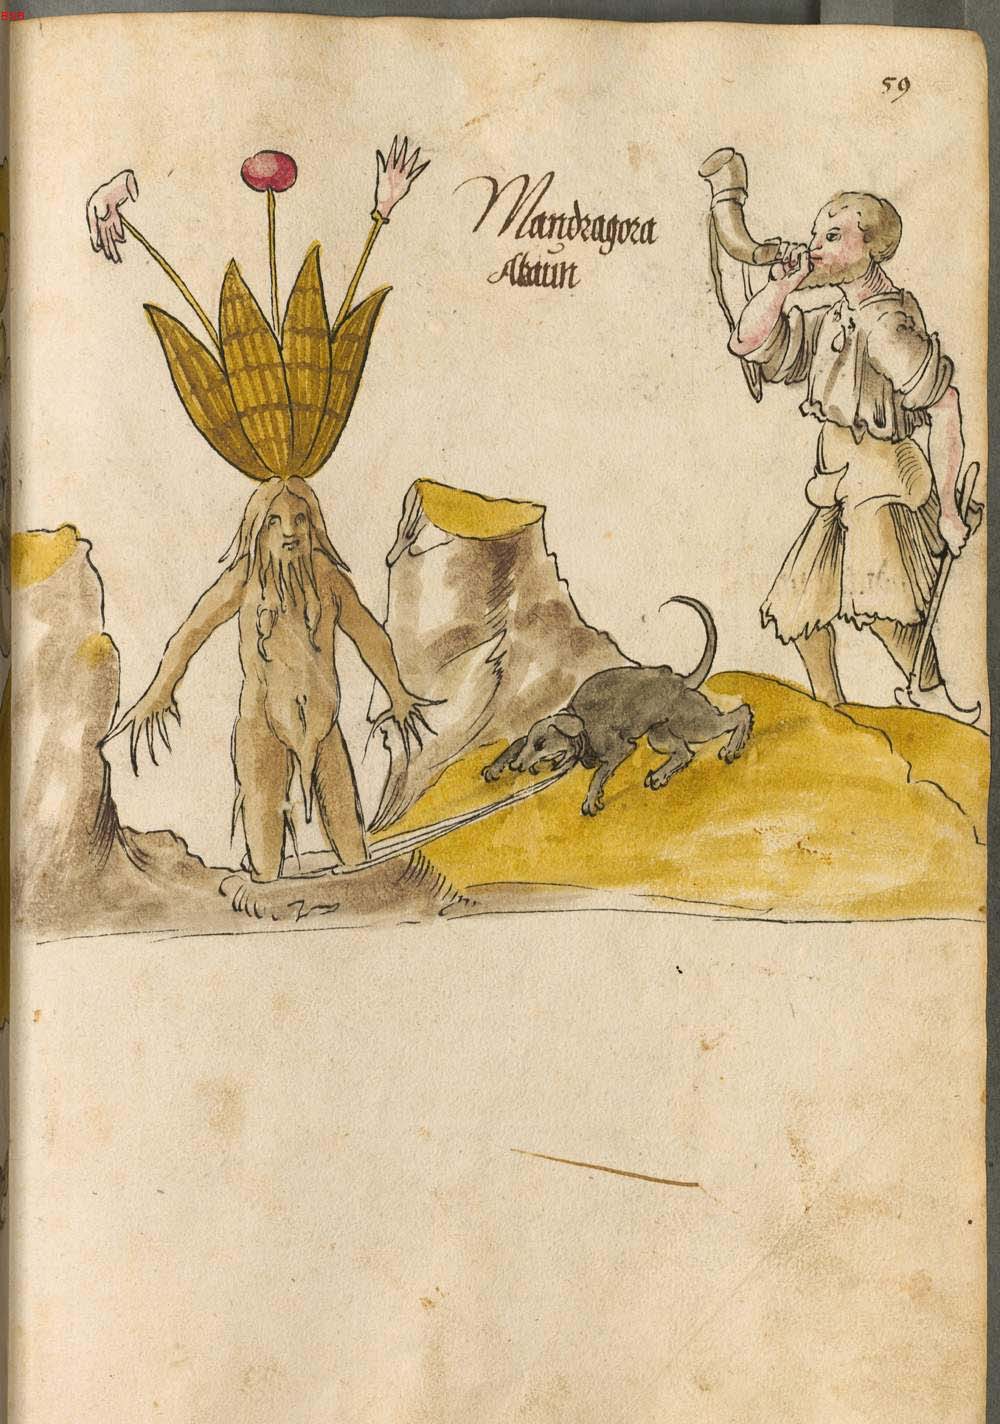 59
Mandragora
Alraun